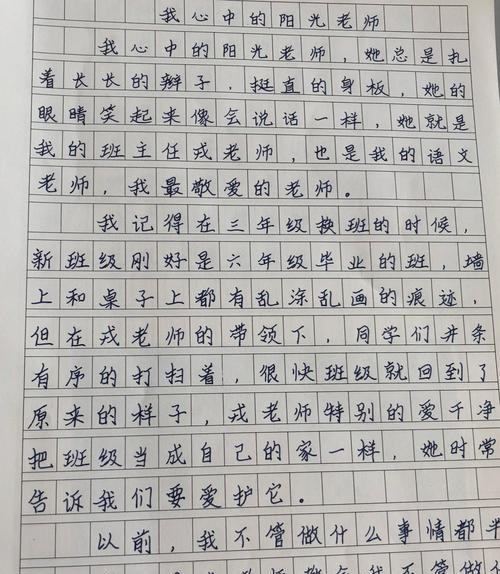 我心中的阳光老师
我心中的阳光老师，她总是扎
着长长的辫子，挺直的身板，她的
眼睛笑起来像会说话一样，她就是
我的班主任戎老师，也是我的语文
老师，我最敬爱的老师。
我记得在三年级换班的时候，
新班级刚好是六年级毕业的班，墙
上和桌子上都有乱涂乱画的痕迹，
但在戎老师的带领下，同学们井条
有序的打扫着，很快班级就回到了
原来的样子，戎老师特别的爱干净
把班级当成自己的家一样，她时常
告诉我们要爱护它。
以前，我不管做什么事情都半